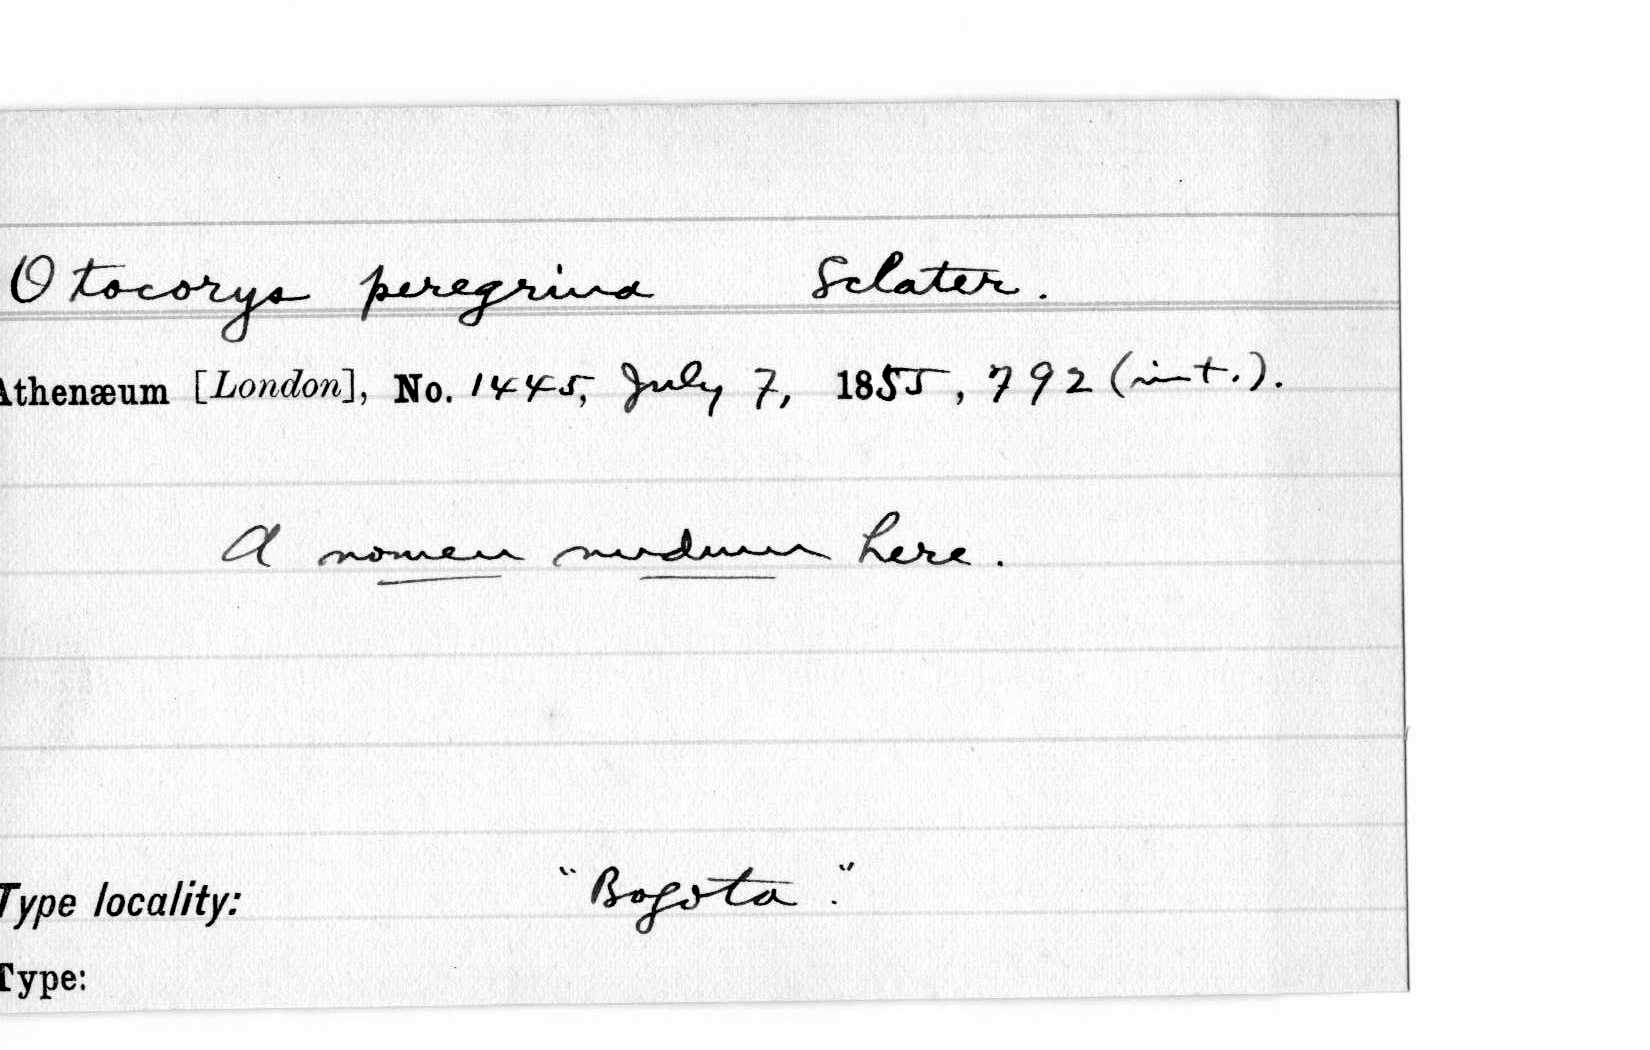 Otocorys peregrina Sclater.
Athenæum [London], No. 1445, July 7, 1855, 792 (int.).
A nomen nudum here.
Type locality: "Bogota."
Type: